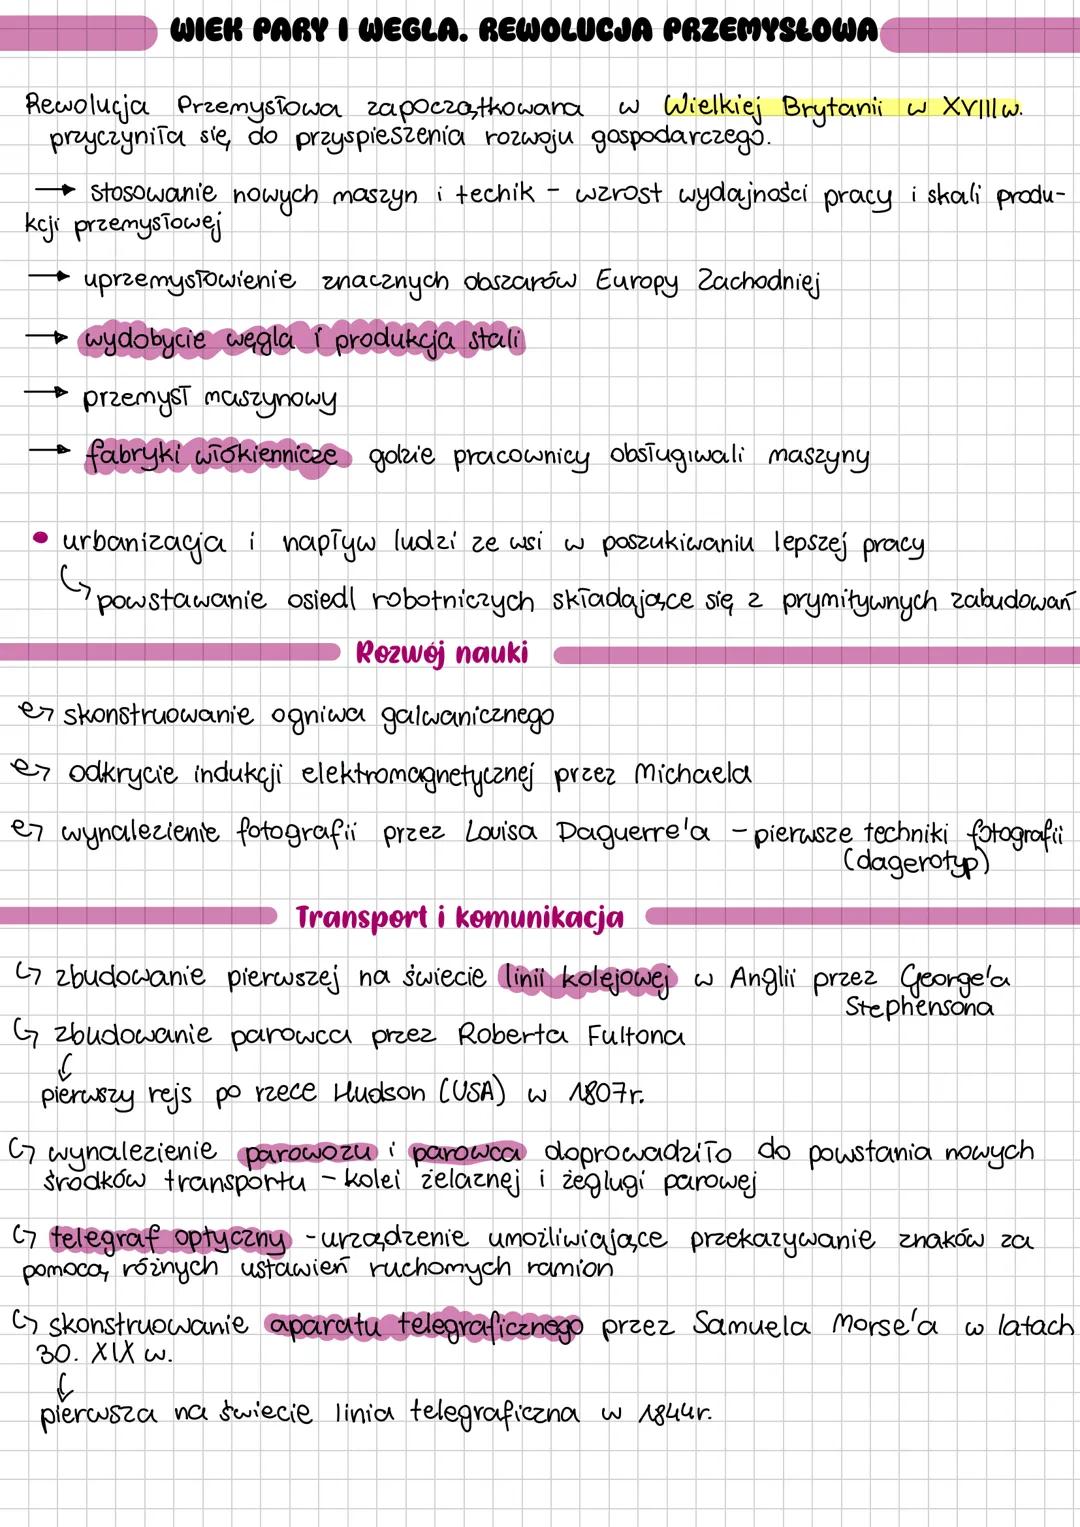 WIEK PARY I WEGLA. REWOLUCJA PRZEMYSŁOWA
Rewolucja Przemysłowa zapoczątkowana w Wielkiej Brytanii w XVIII w.
przyczyniła się do przyspieszenia rozwoju gospodarczego.
→ stosowanie nowych maszyn i techik - wzrost wydajności pracy i skali produ-
kcji przemysłowej
→ uprzemysłowienie znacznych obszarów Europy Zachodniej
→ wydobycie węgla i produkcja stali
→ przemysł maszynowy
→ fabryki włókiennicze gdzie pracownicy obsługiwali maszyny
• urbanizacja i napływ ludzi ze wsi w poszukiwaniu lepszej pracy
↪ powstawanie osiedl robotniczych składające się z prymitywnych zabudowań
Rozwój nauki
↪ skonstruowanie ogniwa galwanicznego
↪ odkrycie indukcji elektromagnetycznej przez Michaela
↪ wynalezienie fotografii przez Louisa Daguerre'a - pierwsze techniki fotografii
(dagerotyp)
Transport i komunikacja
↪ zbudowanie pierwszej na świecie linii kolejowej w Anglii przez George'a
Stephensona
↪ zbudowanie parowca przez Roberta Fultona
↓
pierwszy rejs po rzece Hudson (USA) w 1807r.
↪ wynalezienie parowozu i parowca doprowadziło do powstania nowych
środków transportu - kolei żelaznej i żeglugi parowej
↪ telegraf optyczny - urządzenie umożliwiające przekazywanie znaków za
pomocą różnych ustawień ruchomych ramion
↪ skonstruowanie aparatu telegraficznego przez Samuela Morse'a w latach
30. XIX w.
↓
pierwsza na świecie linia telegraficzna w 1844r.